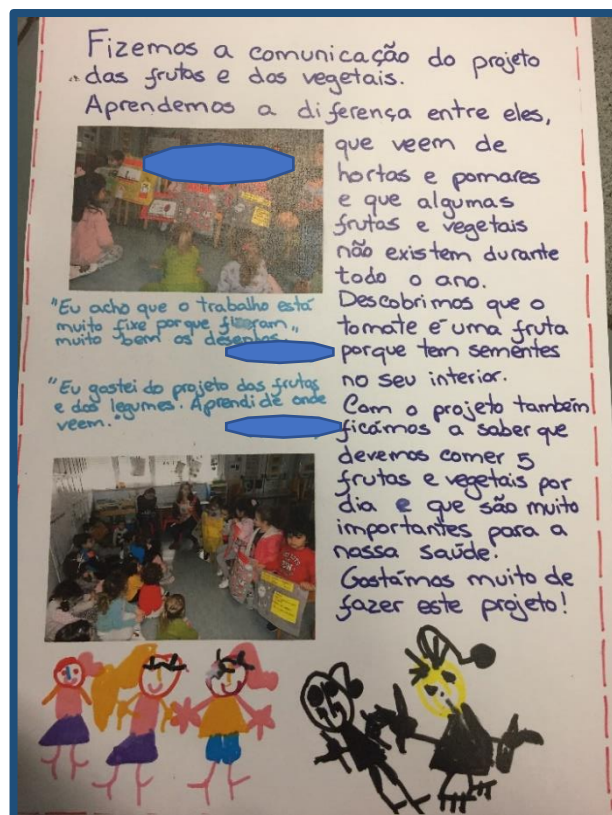 Fizemos a comunicação do projeto
das frutas e dos vegetais.
Aprendemos a diferença entre eles,
que veem de
hortas e pomares
e que algumas
frutas e vegetais
não existem durante
todo o ano.
Descobrimos que o
tomate é uma fruta
porque tem sementes
no seu interior.
Com o projeto também
ficámos a saber que
devemos comer 5
frutas e vegetais por
dia e que são muito
importantes para a
nossa saúde!
Gostámos muito de
fazer este projeto!
"Eu acho que o trabalho está
muito fixe porque fizeram
muito bem os desenhos."
"Eu gostei do projeto das frutas
e dos legumes. Aprendi de onde
veem."